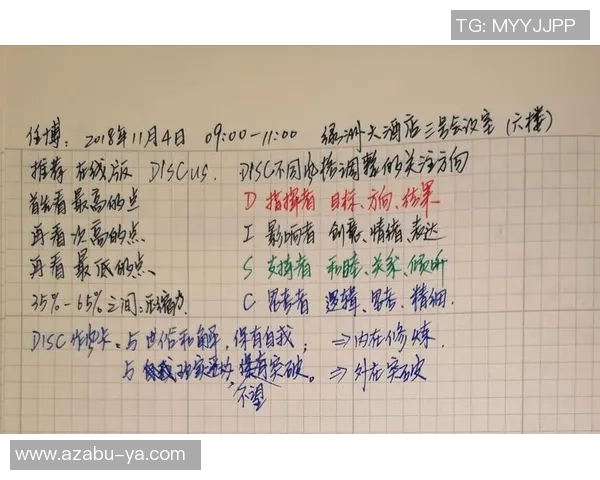 TG: MYYJJPP
任博: 2018年11月4日 09:00-11:00 绿洲大酒店三号会议室 (六楼)
推荐 在线版 DISCus. DISC不同风格调整的关注方向
首先看最高的点 D 指挥者 目标、方向、结果
再看次高的点 I 影响者 创意、情绪、表达
再看最低的点、 S 支持者 和睦、关系、倾听
35%-65%之间:压缩力 C 思考者 逻辑、思考、精细.
DISC 与世俗和解,保有自我; ⇒内在修炼
与 突破。 ⇒外在突破
不望
www.azabu-ya.com